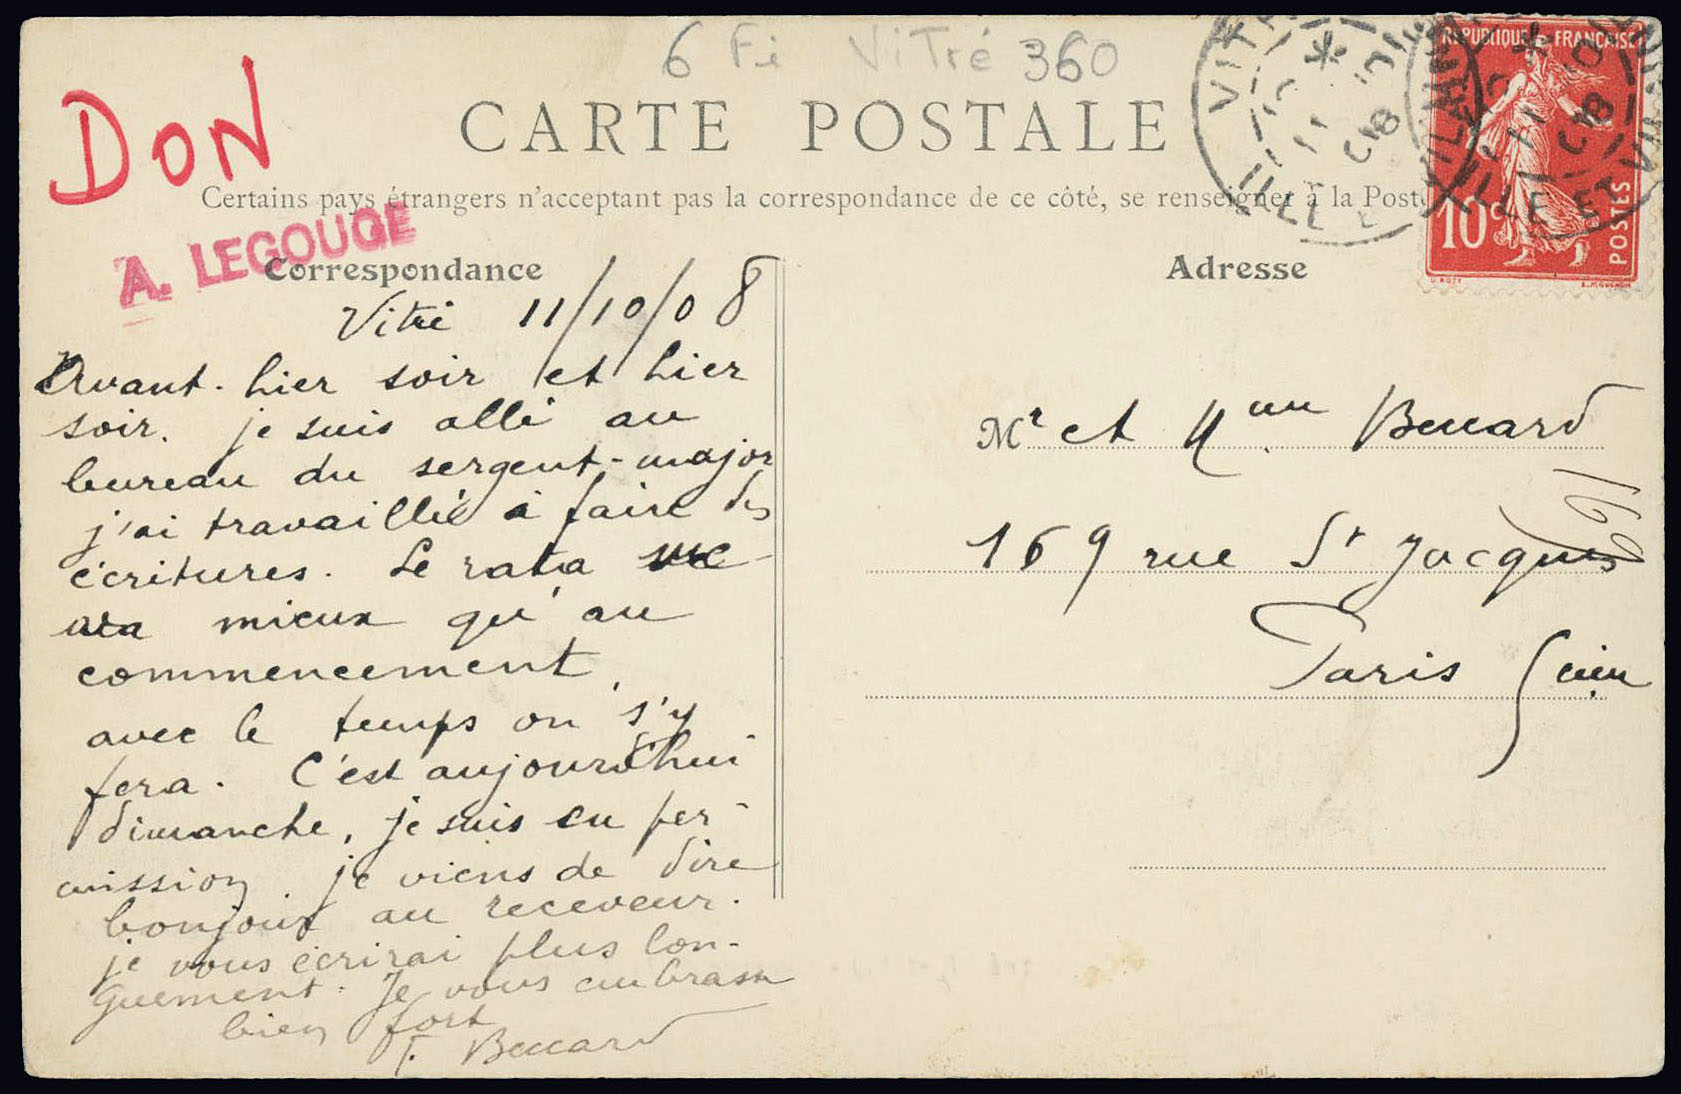 6 Fi Vitré 360
DON
CARTE POSTALE
Certains pays étrangers n'acceptant pas la correspondance de ce côté, se renseigner à la Poste
A. LEGOUGE
Correspondance
Adresse
RÉPUBLIQUE FRANÇAISE
10c
POSTES
VITRÉ
ILLE ET VILAINE
Vitré 11/10/08
Avant-hier soir et hier
soir. je suis allé au
bureau du sergent-major
j'ai travaillé à faire des
écritures. Le rata
va mieux qu'au
commencement,
avec le temps on s'y
fera. C'est aujourd'hui
dimanche, je suis en per-
mission. je viens de dire
bonjour au receveur.
je vous écrirai plus lon-
guement. Je vous embrasse
bien fort
Mr et Mme
169 rue St Jacques
Paris
169